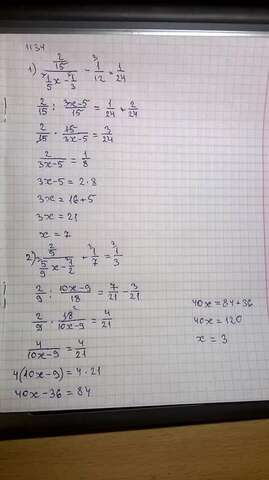 1134
1) (2/15)/(1/5 x - 1/3) - 1/12 = 1/24
2/15 : (3x-5)/15 = 1/24 + 2/24
2/15 · 15/(3x-5) = 3/24
2/(3x-5) = 1/8
3x-5 = 2·8
3x = 16+5
3x = 21
x = 7
2) (2/9)/(5/9 x - 1/2) + 1/7 = 1/3
2/9 : (10x-9)/18 = 7/21 - 3/21
2/9 · 18/(10x-9) = 4/21
4/(10x-9) = 4/21
4(10x-9) = 4·21
40x-36 = 84
40x = 84+36
40x = 120
x = 3